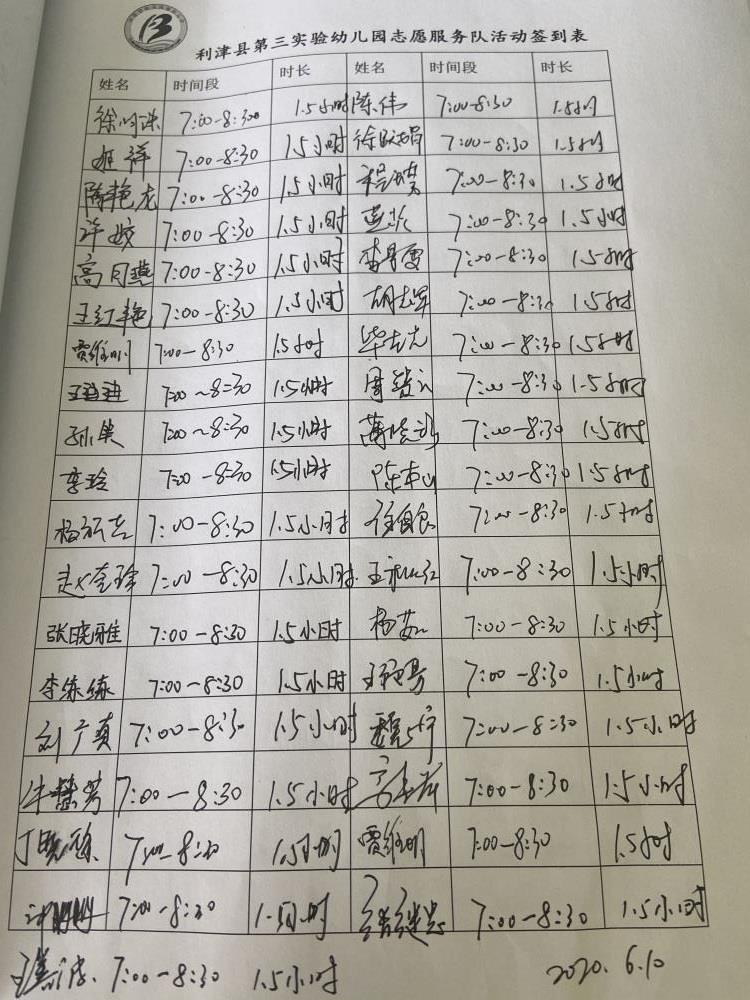 利津县第三实验幼儿园志愿服务队活动签到表
姓名 时间段 时长 姓名 时间段 时长
7:00-8:300 1.5小时 陈伟 7:00-8:30 1.5小时
祥 7:00-8:30 1.5小时 徐 娟 7:00-8:30 1.5小时
陈艳龙 7:00-8:30 1.5小时 7:00-8:30 1.5小时
许姣 7:00-8:30 1.5小时 7:00-8:30 1.5小时
高月燕 7:00-8:30 1.5小时 李丹雪 7:00-8:30 1.5小时
王红艳 7:00-8:30 1.5小时 胡志军 7:00-8:30 1.5小时
贾维明 7:00-8:30 1.5小时 毕志光 7:00-8:30 1.5小时
王进进 7:00~8:30 1.5小时 周 7:00-8:30 1.5小时
孙 7:00~8:30 1.5小时 薄 7:00-8:30 1.5小时
李玲 7:00-8:30 1.5小时 陈 7:00-8:30 1.5小时
杨 7:00-8:30 1.5小时 7:00-8:30 1.5小时
赵 珍 7:00-8:30 1.5小时 王 红 7:00-8:30 1.5小时
张晓雅 7:00-8:30 1.5小时 杨 7:00-8:30 1.5小时
李练练 7:00-8:30 1.5小时 王 7:00-8:30 1.5小时
刘广真 7:00-8:30 1.5小时 魏 宁 7:00-8:30 1.5小时
芳 7:00-8:30 1.5小时 7:00-8:30 1.5小时
丁晓 7:00-8:30 1.5小时 贾维明 7:00-8:30 1.5小时
7:00-8:30 1.5小时 7:00-8:30 1.5小时
7:00-8:30 1.5小时 2020.6.10